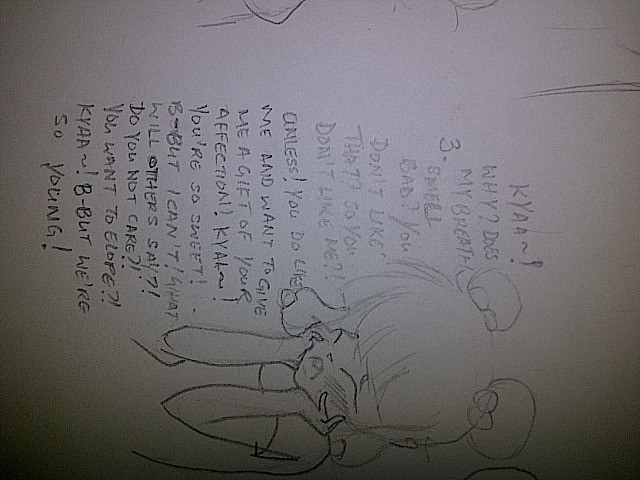 KYAA~!
WHY? DOES
MY BREATH
3- SMELL
BAD? YOU
DON'T LIKE
THAT? SO YOU
DON'T LIKE ME?!
UNLESS! YOU DO LIKE
ME AND WANT TO GIVE
ME A GIFT OF YOUR
AFFECTION!? KYAA~!
YOU'RE SO SWEET!
B-BUT I CAN'T! WHAT
WILL OTHERS SAY?!
DO YOU NOT CARE?!
YOU WANT TO ELOPE?!
KYAA~! B-BUT WE'RE
SO YOUNG!